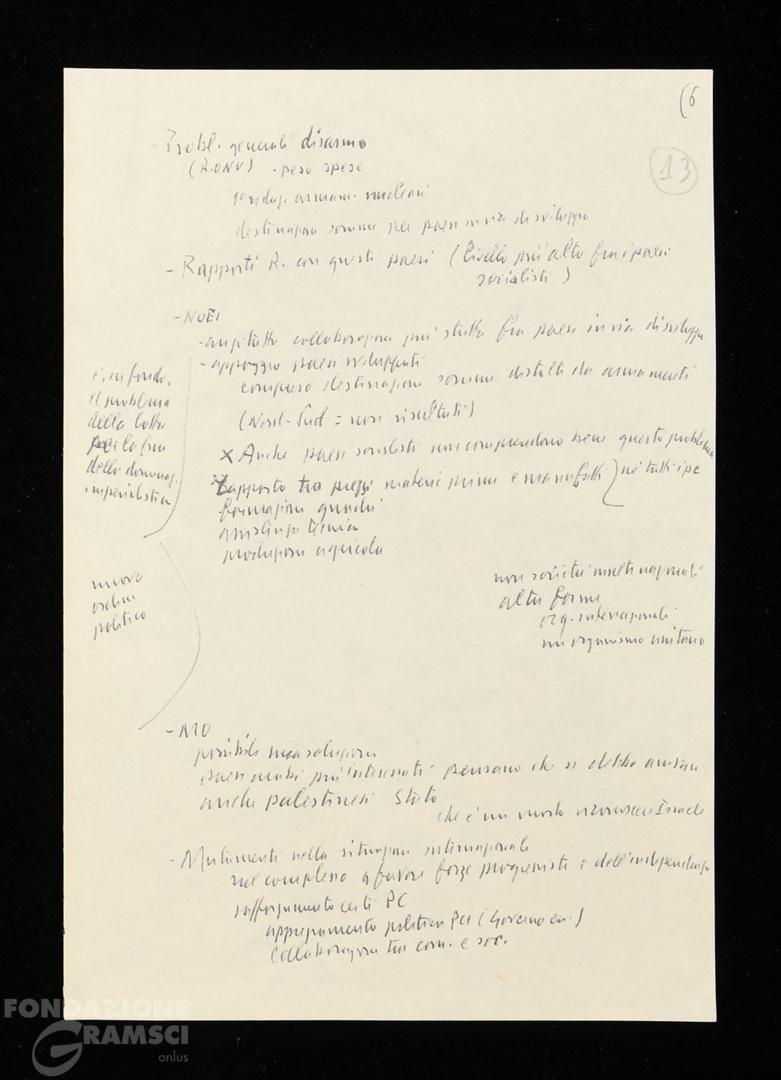 (6
13
- Probl. generali disarmo
(R. ONU) - peso spese
riduz. armam. nucleari
destinazione somme per paesi in via di sviluppo
- Rapporti R. con questi paesi (livello più alto fra i paesi
socialisti)
- NOEI
- anzitutto collaborazione più stretta fra paesi in via di sviluppo
- appoggio paesi sviluppati
compreso destinazione somme distolte da armamenti
(Nord-Sud = non risultati)
x Anche paesi socialisti non comprendono bene questo problema
rapporto tra prezzi materie prime e manufatti) né tutti i pc
formazione quadri
assistenza tecnica
produzione agricola
è, in fondo,
il problema
della lotta
per la fine
della dominaz.
imperialistica
nuovo
ordine
politico
non società multinazionali
altre forme
org. internazionali
un organismo unitario
- MO
possibile una soluzione
paesi arabi più interessati pensano che si debba
anche palestinesi Stato
che è un modo riconoscere Israele
- Mutamenti nella situazione internazionale
nel complesso a favore forze progressiste e dell'indipendenza
rafforzamento certi PC
apprezzamento politica PCI (Governo
collaborazione tra com. e soc.
FONDAZIONE
GRAMSCI
onlus